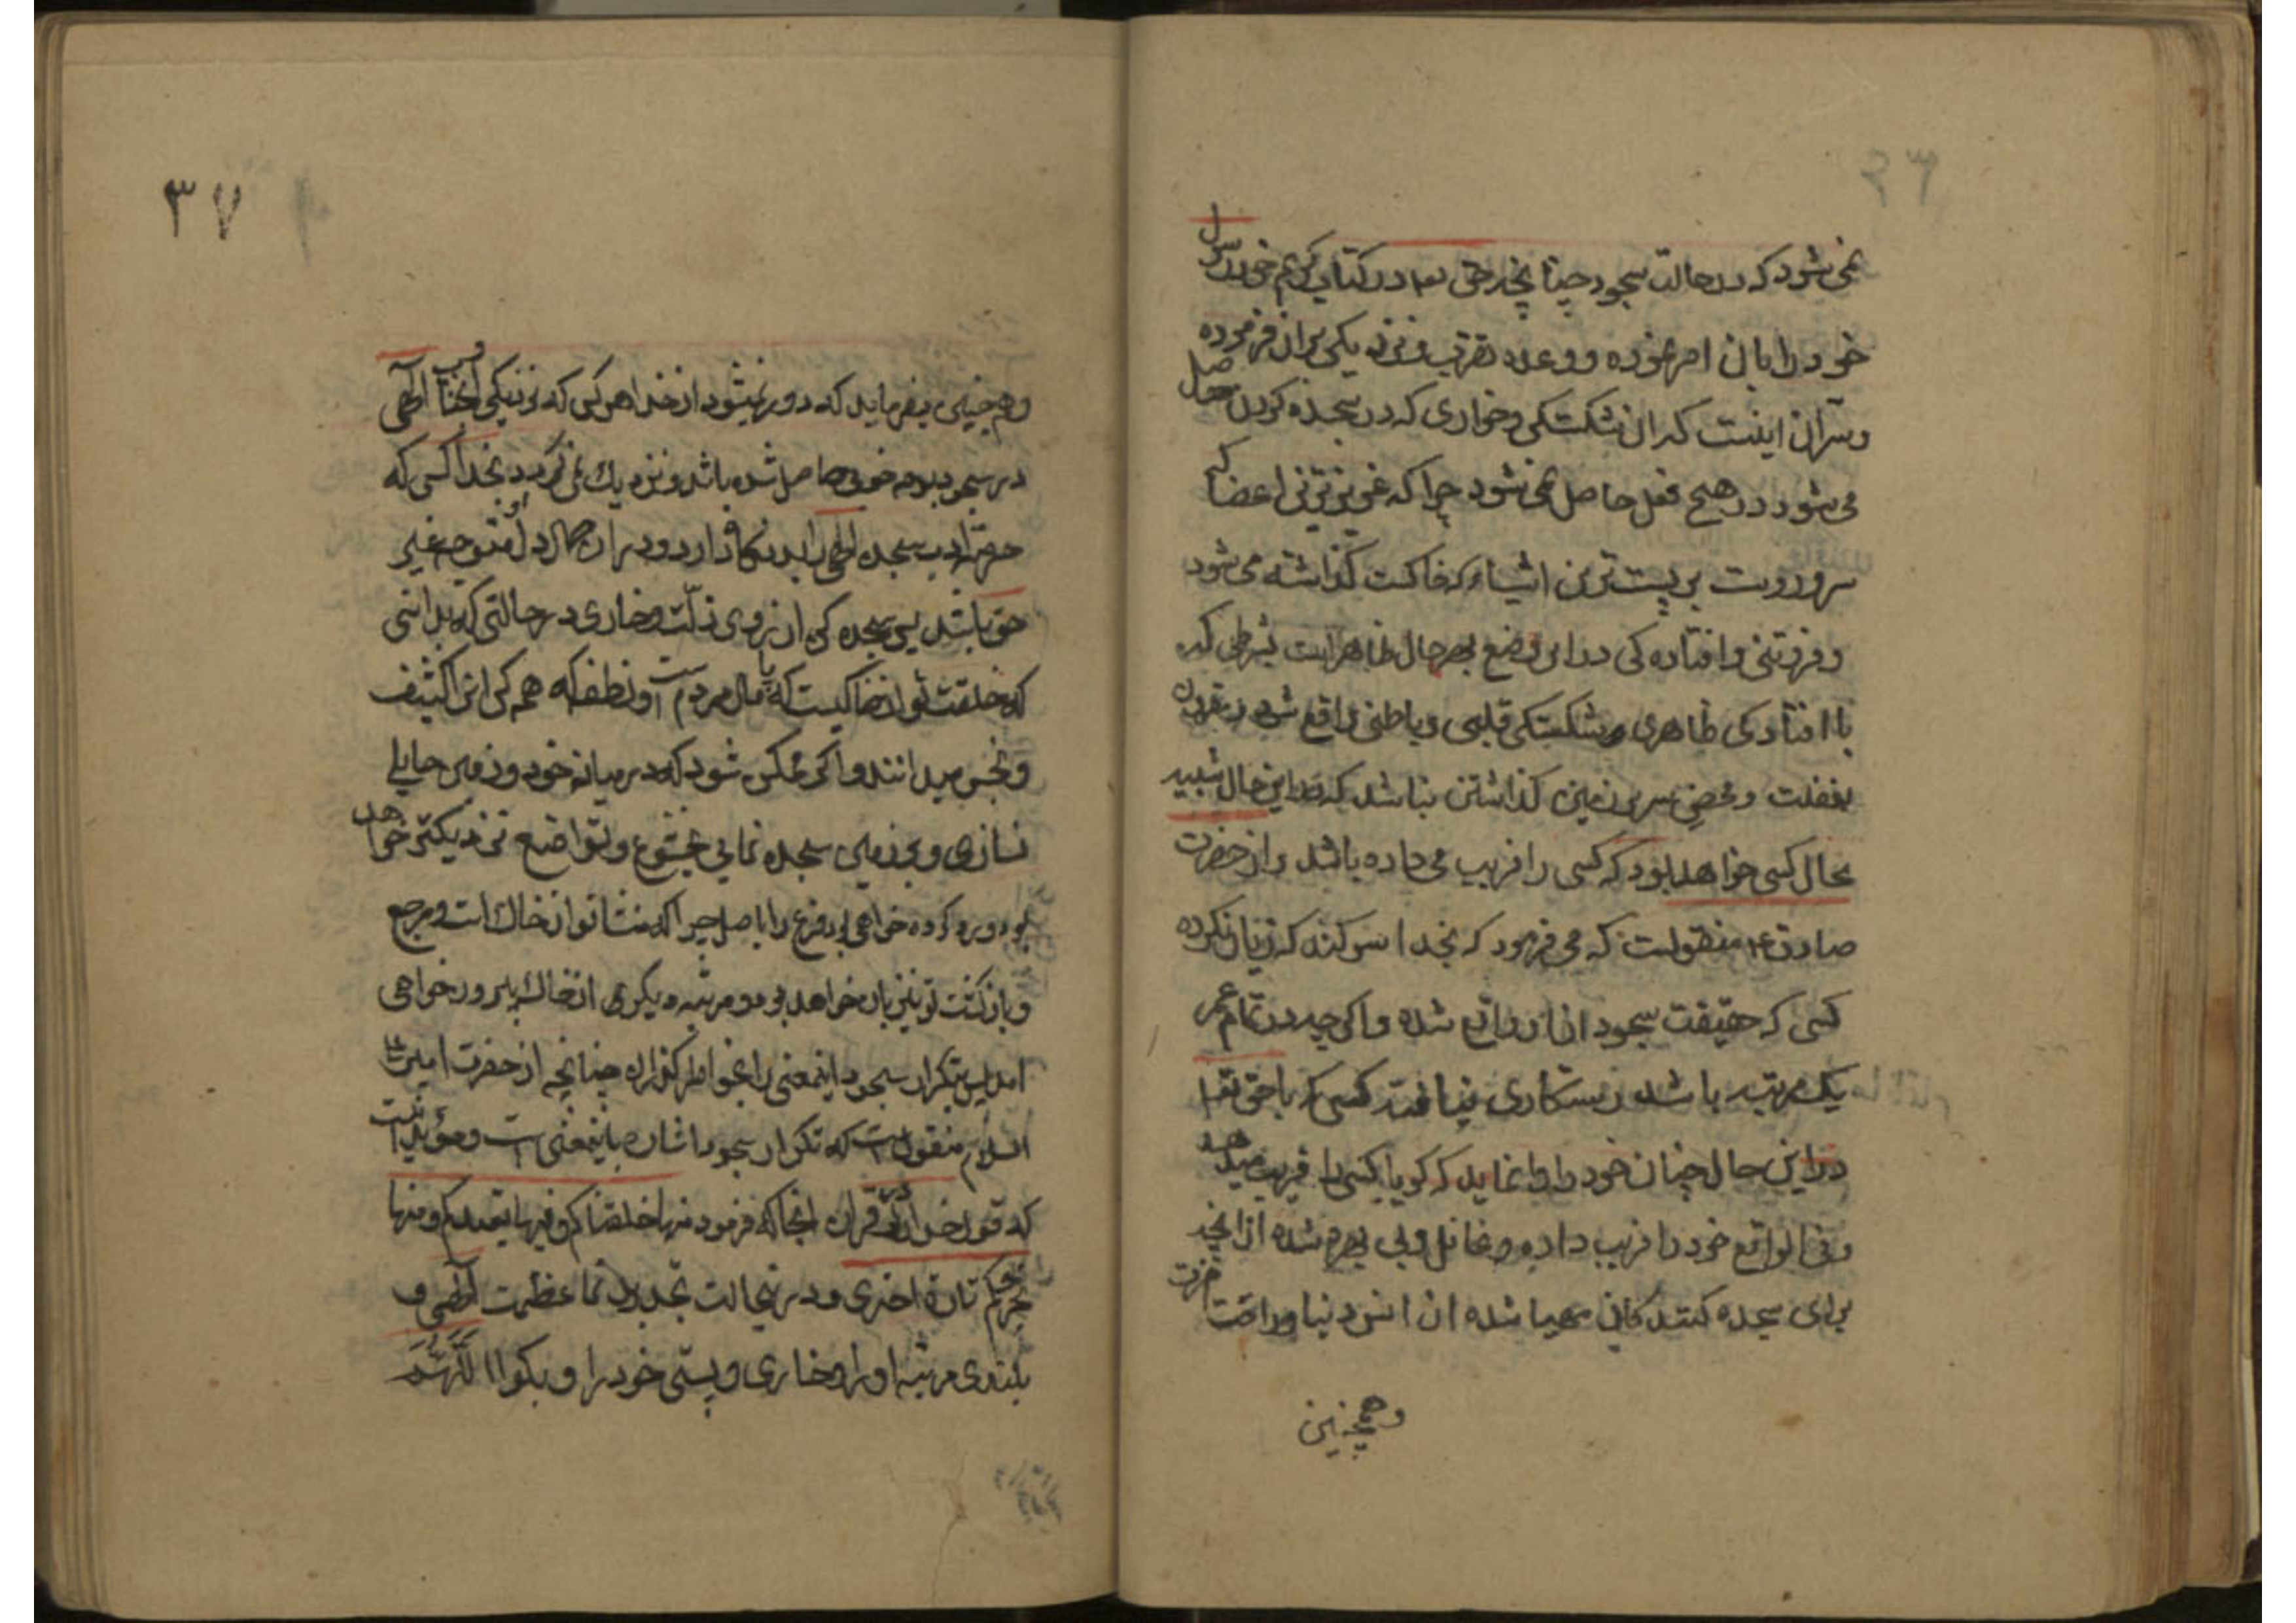 نمی شود که در حالت سجود چنانچه حق تعا در کتاب کریم خود رسول
خود را بان امر نموده و وعده تقرب و نزدیکی بران فرموده
و سر آن اینست که ان شکستکی و خواری که در سجده کردن حاصل
می شود در هیچ فعل حاصل نمی شود چرا که عزیزترین اعضا که
سر و رویت بر پست ترین اشیاء که خاکست گذاشته می شود
و فروتنی و افتاده کی در این وضع بهر حال ظاهر است بشرطی که
با افتادکی ظاهری و شکستکی قلبی و باطنی واقع شود و مقرون
بغفلت و محض سر بر زمین کذاشتن نباشد که در این حال شبیه
بحال کسی خواهد بود که کسی را فریب می داده باشد و از حضرت
صادق ع منقولست که می فرمود که بخدا سوکند که زیان نکرده
کسی که حقیقت سجود از او واقع شده و اکرچه در تمام عمر
یک مرتبه باشد و رستکاری نیافته کسی که با حق تعا
در این حال چنان خود را وانماید که کویا کسی را فریب میدهد
و فی الواقع خود را فریب داده و غافل و بی بهره شده از آنچه
برای سجده کنندکان مهیا شده از انس دنیا و راحت اخرت
وهمچنین
۳۷
و هم چنین میفرماید که دور نمیشود از خدا هر کس که نزدیکی بجناب اقدس الهی
در سجود بدو خوب حاصل شده باشد و نزدیک نمی کردد بخدا کسی که
حق ادب سجده الهی را بد نکاه دارد و در ان حال دل او متوجه غیر
حق باشد پس سجده کن از روی ذلّت و خاری در حالتی که بدانی
که خلقت تو از خاکیست که پا مال مردم است و نطفه که همه کس انرا کثیف
و نجس میدانند و اکر ممکن شود که در میانه خود و زمین حایلی
نسازی و بر زمین سجده نمایی بخشوع و تواضع نزدیکتر خواهد
بود و رو کرده خواهی بود فرع را باصل چرا که منشا تو از خاک است و مرجع
و بازکشت تو نیز بان خواهد بود و مرتبه دیکر از خاک بدر خواهی
امد پس بتکرار سجود اینمعنی را بخواطر گذران چنانچه از حضرت امیر علیه
السلام منقول است که تکرار سجود اشاره باینمعنی است و مؤید اینست
که قول خدا در قران انجا که فرمود منها خلقناکم و فیها نعیدکم و منها
نخرجکم تارة اخری و در نیحالت تجدید نما عظمت الهی و
بلندی مرتبه او را و خاری و پستی خود را و بکو